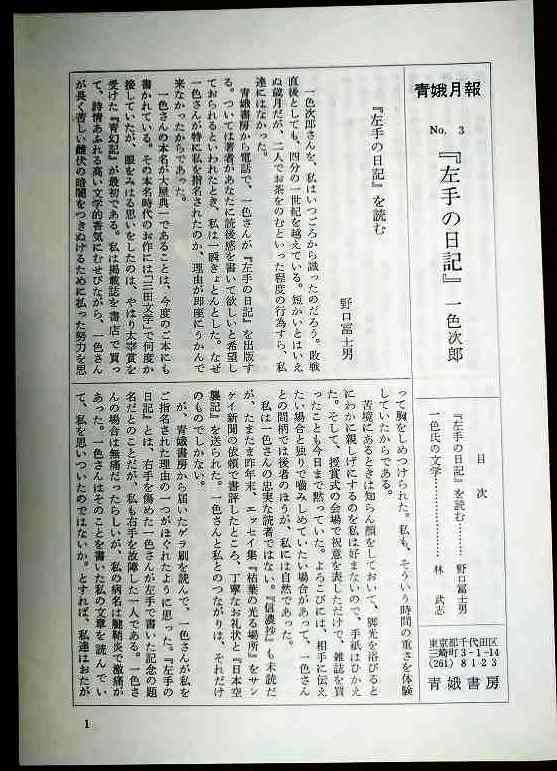 青娥月報
No. 3
『左手の日記』一色次郎
目次
『左手の日記』を読む………野口冨士男
一色氏の文学………林 武志
東京都千代田区
三崎町3-1-14
(261)8123
青娥書房
『左手の日記』を読む
野口冨士男
一色次郎さんを、私はいつごろから識ったのだろう。敗戦
直後としても、四分の一世紀を越えている。短かいとはいえ
ぬ歳月だが、二人でお茶をのむといった程度の行為すら、私
達にはなかった。
青娥書房から電話で、一色さんが『左手の日記』を出版す
る。ついては著者があなたに読後感を書いて欲しいと希望し
ておられるといわれたとき、私は一瞬きょとんとした。なぜ
一色さんが特に私を指名されたのか、理由が即座にうかんで
来なかったからであった。
一色さんの本名が大屋典一であることは、今度のご本にも
書かれている。その本名時代のお作には「三田文学」で何度か
接していたが、眼をみはる思いをしたのは、やはり太宰賞を
受けた『青幻記』が最初である。私は掲載誌を書店で買っ
て、詩情あふれる高い文学的香気にむせびながら、一色さん
が長く苦しい雌伏の暗闇をつきぬけるために私った努力を思
って胸をしめつけられた。私も、そういう時間の重さを体験
していたからである。
苦境にあるときは知らん顔をしておいて、脚光を浴びると
にわかに親しげにするのを私は好まないので、手紙はひかえ
た。そして、授賞式の会場で祝意を表しただけで、雑誌を買
ったことも今日まで黙っていた。よろこびには、相手に伝え
たい場合と独りで噛みしめていたい場合があって、一色さん
との間柄では後者のほうが、私には自然であった。
私は一色さんの忠実な読者ではない。『信濃抄』も未読だ
が、たまたま昨年末、エッセイ集『枯葉の光る場所』をサン
ケイ新聞の依頼で書評したところ、丁寧なお礼状と『日本空
襲記』を送られた。一色さんと私とのつながりは、それだけ
のものでしかない。
が、青娥書房から届いたゲラ刷を読んで、一色さんが私を
ご指名された理由の一つがほぐれたように思った。『左手の
日記』とは、右手を傷めた一色さんが左手で書いた記念の題
名だとのことだが、私も右手を故障した一人である。一色さ
んの場合は無痛だったらしいが、私の病名は腱鞘炎で激痛が
あった。一色さんはそのことを書いた私の文章を読んでい
て、私を思いついたのではないか。とすれば、私達はおたが
1